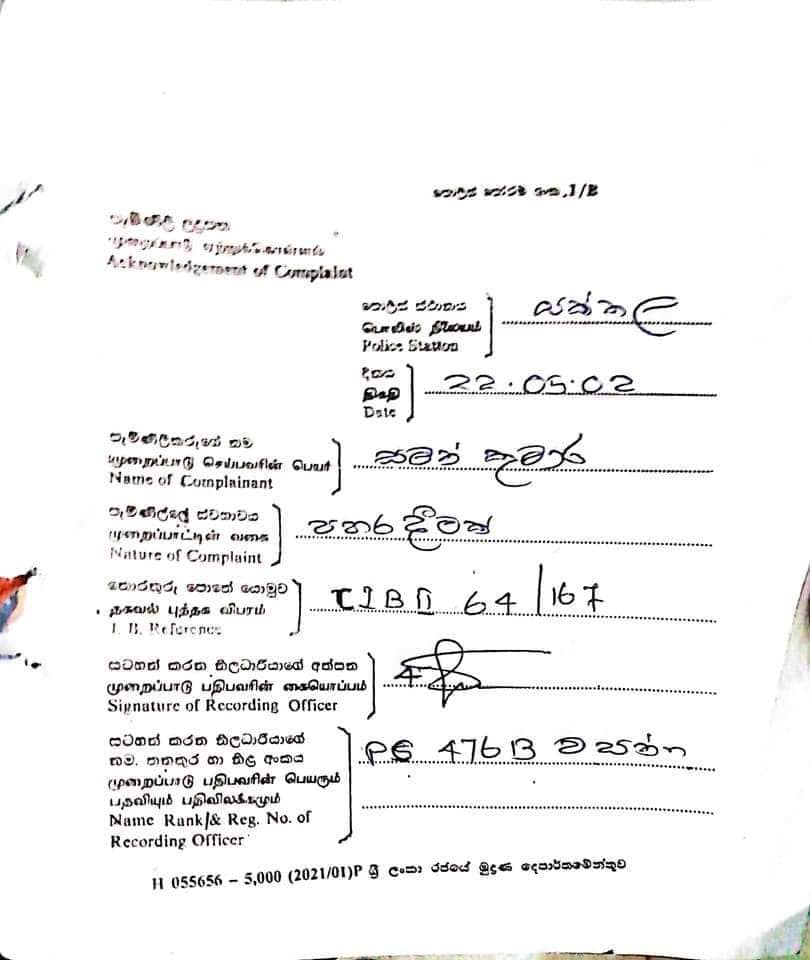 පොලිස් පෝරම අංක.1/B
පැමිණිලි ලදුපත
முறைப்பாடு ஏற்றுக்கொள்ளல்
Acknowledgement of Complaint
පොලිස් ස්ථානය
பொலிஸ் நிலையம்
Police Station
යක්කල
දිනය
திகதி
Date
22.05.02
පැමිණිලිකරුගේ නම
முறைப்பாடு செய்பவரின் பெயர்
Name of Complainant
සමන් කුමාර
පැමිණිල්ලේ ස්වභාවය
முறைப்பாட்டின் வகை
Nature of Complaint
පහරදීමක්
තොරතුරු පොතේ යොමුව
தகவல் புத்தக விபரம்
I. B. Reference
CIB II 64/167
සටහන් කරන නිලධාරියාගේ අත්සන
முறைப்பாடு பதிபவரின் கையொப்பம்
Signature of Recording Officer
සටහන් කරන නිලධාරියාගේ
නම, තනතුර හා නිල අංකය
முறைப்பாடு பதிபவரின் பெயரும்
பதவியும் பதிவிலக்கமும்
Name Rank/& Reg. No. of
Recording Officer
PS 47613 වසන්ත
H 055656 – 5,000 (2021/01)P ශ්‍රී ලංකා රජයේ මුද්‍රණ දෙපාර්තමේන්තුව